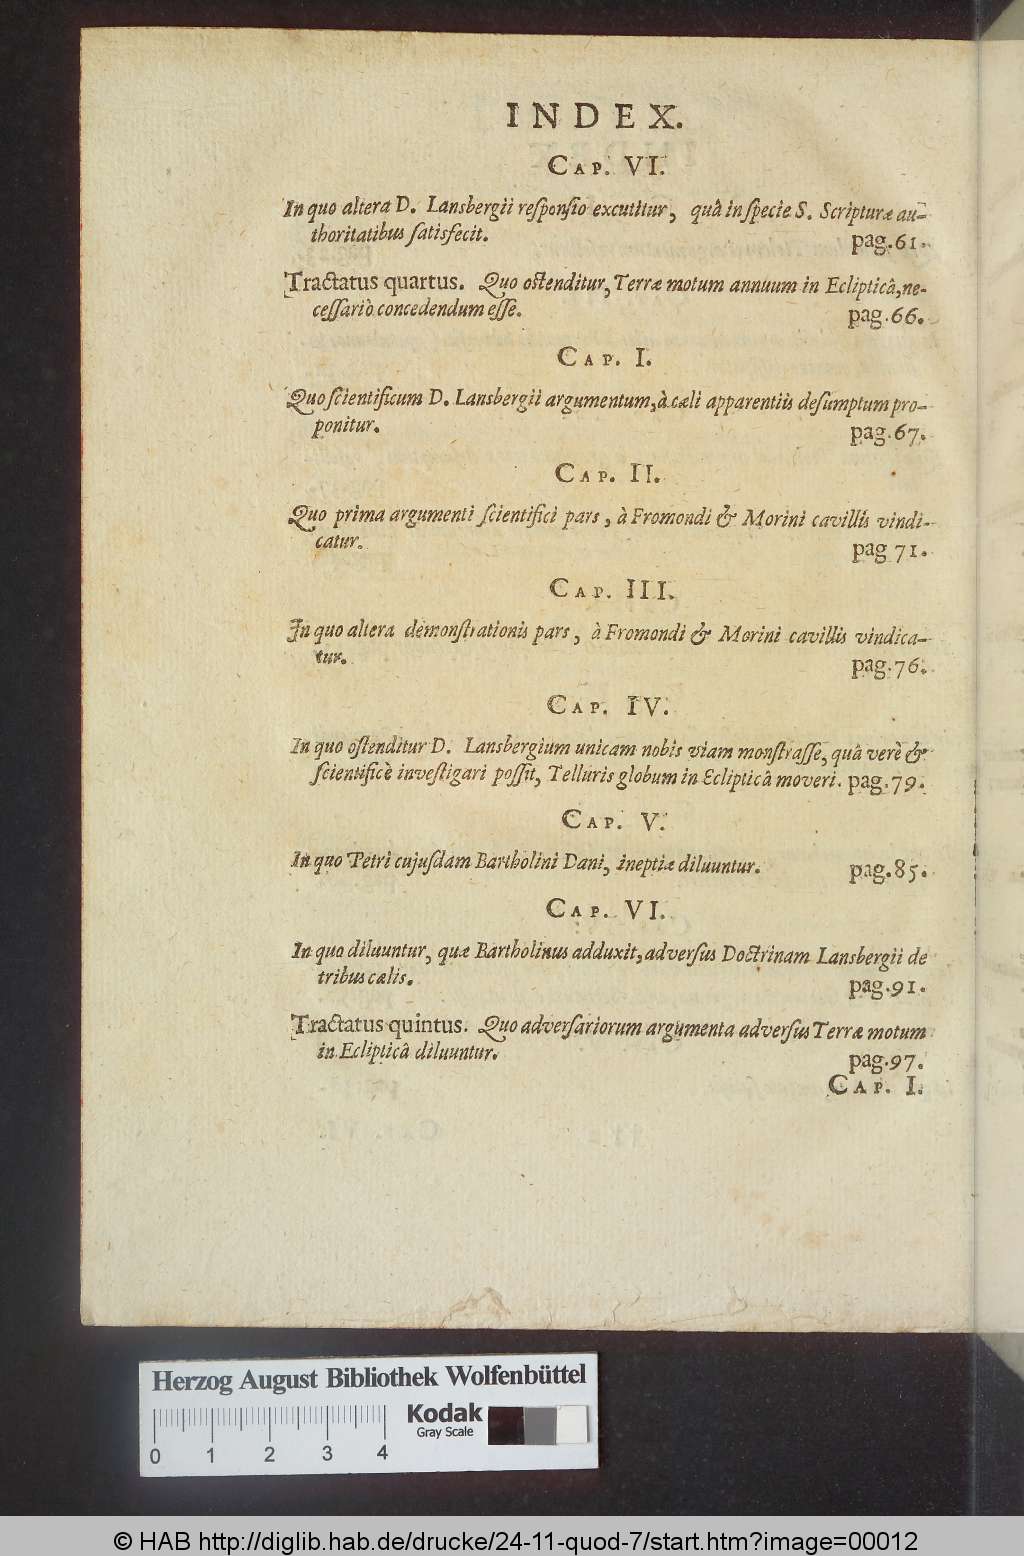 INDEX.
CAP. VI.
In quo altera D. Lansbergii responsio excutitur, quâ in specie S. Scripturæ au-
thoritatibus satisfecit. pag.61.
Tractatus quartus. Quo ostenditur, Terræ motum annuum in Eclipticâ, ne-
cessariò concedendum esse. pag.66.
CAP. I.
Quo scientificum D. Lansbergii argumentum, à cæli apparentiis desumptum pro-
ponitur. pag.67.
CAP. II.
Quo prima argumenti scientifici pars, à Fromondi & Morini cavillis vindi-
catur. pag 71.
CAP. III.
In quo altera demonstrationis pars, à Fromondi & Morini cavillis vindica-
tur. pag.76.
CAP. IV.
In quo ostenditur D. Lansbergium unicam nobis viam monstrasse, quâ verè &
scientificè investigari possit, Telluris globum in Eclipticâ moveri. pag.79.
CAP. V.
In quo Petri cujusdam Bartholini Dani, ineptiæ diluuntur. pag.85.
CAP. VI.
In quo diluuntur, quæ Bartholinus adduxit, adversus Doctrinam Lansbergii de
tribus cælis. pag.91.
Tractatus quintus. Quo adversariorum argumenta adversus Terræ motum
in Eclipticâ diluuntur. pag.97.
CAP. I.
Herzog August Bibliothek Wolfenbüttel
Kodak
Gray Scale
0 1 2 3 4
© HAB http://diglib.hab.de/drucke/24-11-quod-7/start.htm?image=00012